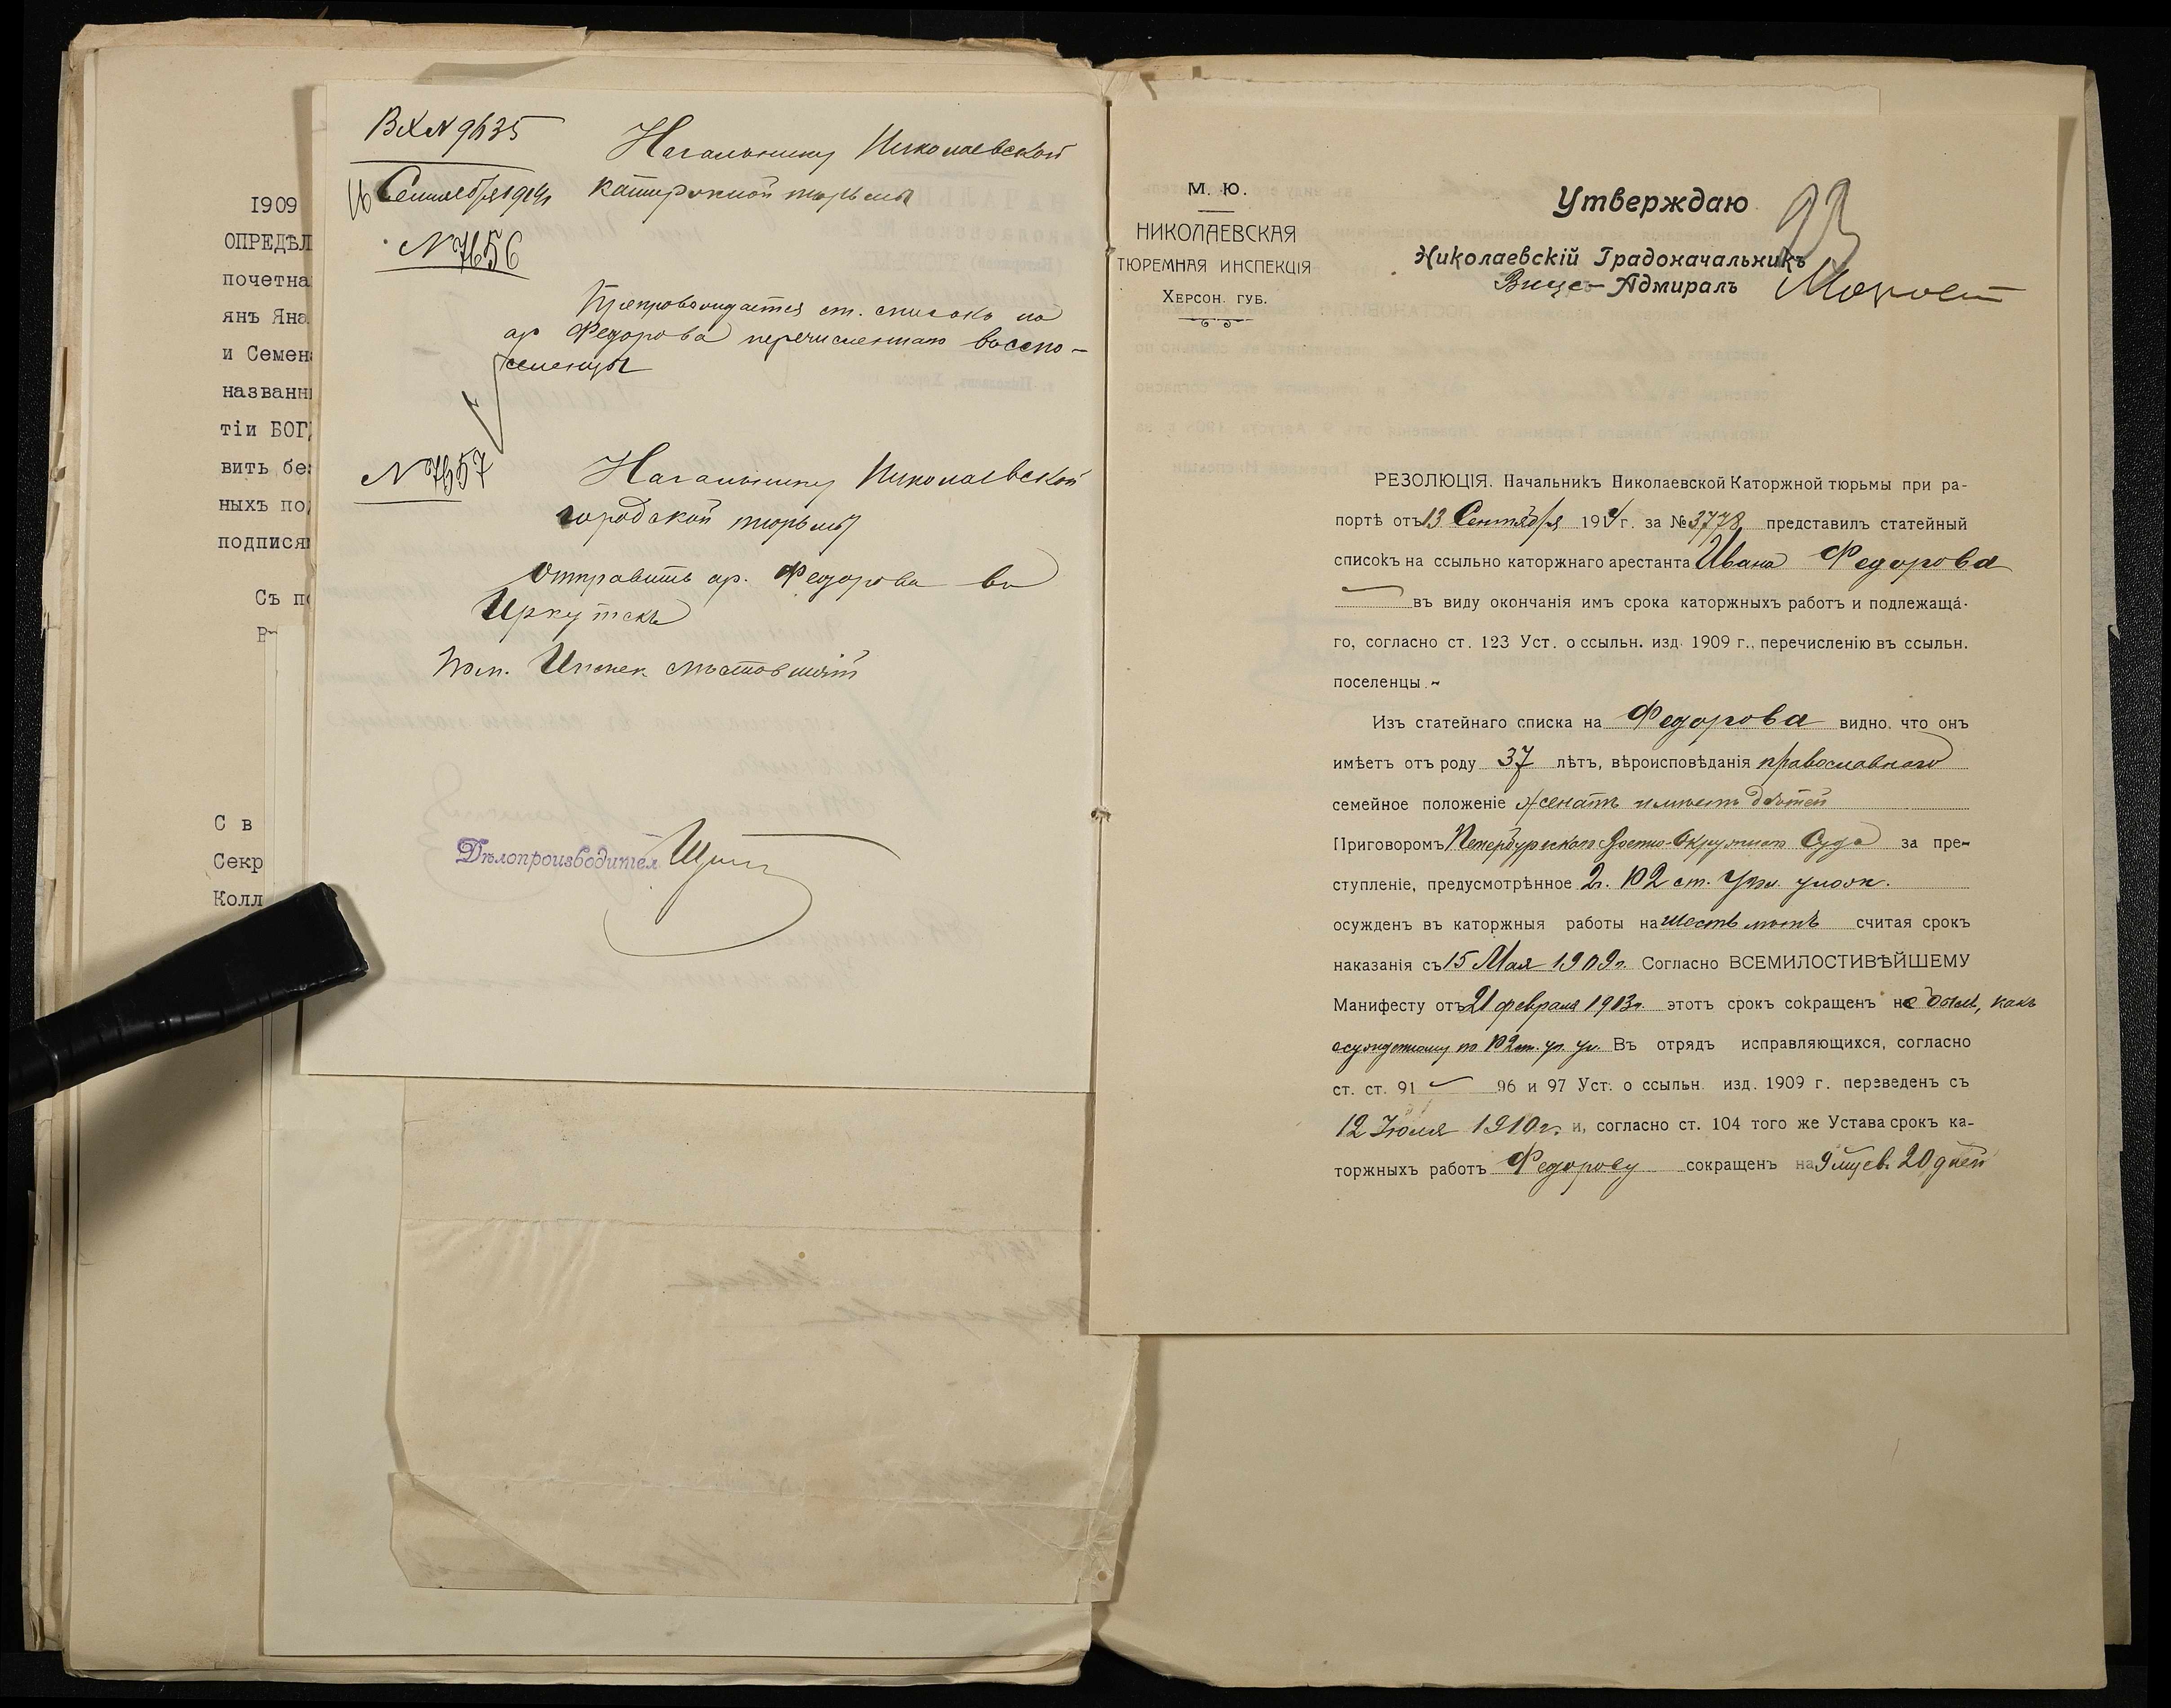 1909
ОПРЕДѢЛ
почетна
янъ Яна
и Семен
названн
тіи БОГ
вить бе
ныхъ по
подписа
Съ п
С в
Секр
Колл
Вх N 9635
16 Сентября 1914 г
N 7656
Начальнику Николаевской
каторжной тюрьмы
Препровождается ст. списокъ на
ар Федорова перечисленнаго въ ссло-
селенцы
N 7657
Начальнику Николаевской
городской тюрьмы
Отправить ар. Федорова въ
Иркутскъ
Тюр. Инспек
Дѣлопроизводител
М. Ю.
НИКОЛАЕВСКАЯ
ТЮРЕМНАЯ ИНСПЕКЦІЯ
ХЕРСОН. ГУБ.
Утверждаю
93
Николаевскій Градоначальникъ
Вице-Адмиралъ
РЕЗОЛЮЦІЯ. Начальникъ Николаевской Каторжной тюрьмы при ра-
портѣ отъ 13 Сентября 1914 г. за № 3778 представилъ статейный
списокъ на ссыльно каторжнаго арестанта Ивана Федорова
въ виду окончанія имъ срока каторжныхъ работъ и подлежаща-
го, согласно ст. 123 Уст. о ссыльн. изд. 1909 г., перечисленію въ ссыльн.
поселенцы.
Изъ статейнаго списка на Федорова видно, что онъ
имѣетъ отъ роду 37 лѣтъ, вѣроисповѣданія православнаго
семейное положеніе женатъ имѣетъ дѣтей
Приговоромъ Петербургскаго Военно-Окружнаго Суда за пре-
ступленіе, предусмотрѣнное 2 ч. 102 ст. Угол. улож.
осужденъ въ каторжныя работы на шесть лѣтъ считая срокъ
наказанія съ 15 Мая 1909 г. Согласно ВСЕМИЛОСТИВѢЙШЕМУ
Манифесту отъ 21 февраля 1913 г. этотъ срокъ сокращенъ не былъ, какъ
осужденному по 102 ст. уг. ул. Въ отрядъ исправляющихся, согласно
ст. ст. 91 96 и 97 Уст. о ссыльн. изд. 1909 г. переведенъ съ
12 Іюля 1910 г. и, согласно ст. 104 того же Устава срокъ ка-
торжныхъ работъ Федорову сокращенъ на 9 мцев. 20 дней